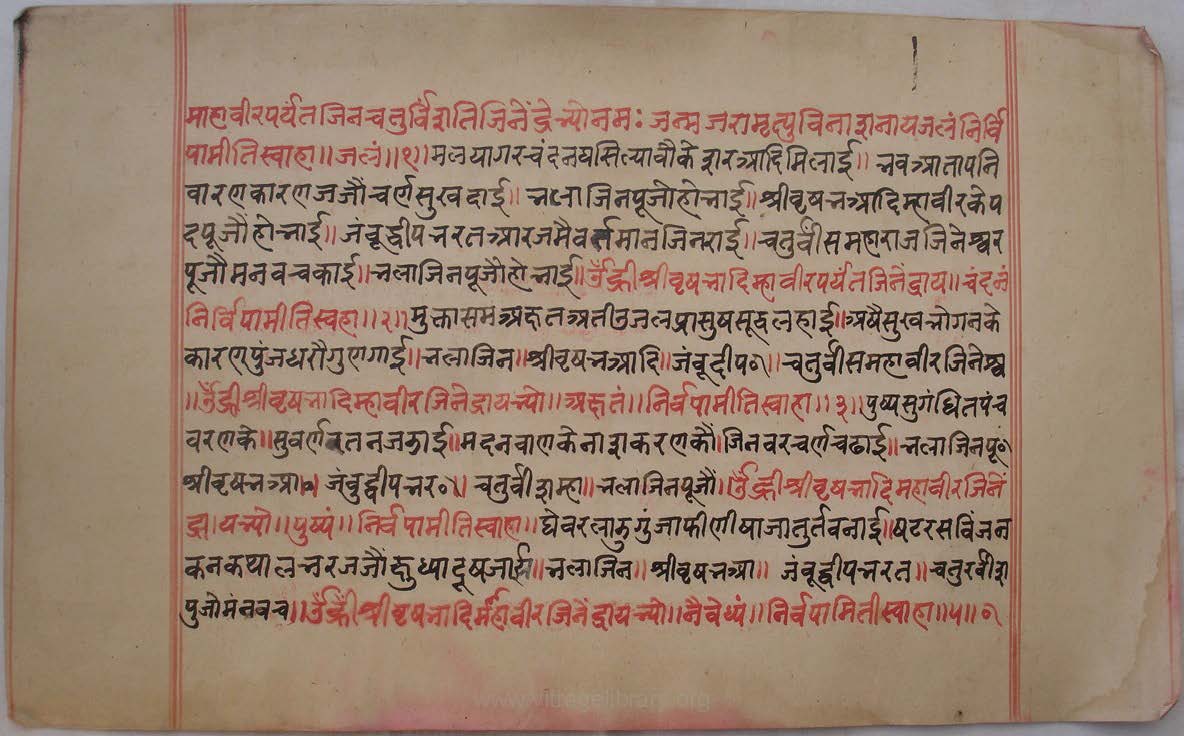 माहावीरपर्यंतजिनचतुर्विंशतिजिनेंद्रेभ्योनमः जन्मजरामृत्युविनाशनायजलंनिर्वि
पामीतिस्वाहा॥जलं॥१॥मलयागरचंदनघसिल्यावौकेशरआदिमिलाई॥ भवआतापनि
वारणकारणजजौंचर्णसुखदाई॥ भलाजिनपूजोहोभाई॥श्रीवृषभआदिम्हावीरकेप
दपूजौंहोभाई॥ जंबूद्वीपभरतआरजमैवर्तमानजिनराई॥चतुर्वीसमहाराजजिनेश्वर
पूजौमनवचकाई॥भलाजिनपूजौहोभाई॥ॐह्रींश्रीवृषभादिम्हावीरपर्यंतजिनेंद्राय॥चंदनं
निर्विपामीतिस्वहा॥२॥मुक्तासमंअक्षतअतीउजलप्रासुषसूद्धलहाई॥अषैसुखभोगनके
कारणपुंजधरौगुणगाई॥भलाजिन॥श्रीवृषभआदि॥जंबूदीप०॥चतुर्वीसमहावीरजिनेश्व
॥ॐह्रींश्रीवृषभादिम्हावीरजिनेद्रायभ्यो॥अक्षतं॥निर्वपामीतिस्वाहा॥३॥पुष्पसुगंधितपंच
वरणके॥सुवर्णरतनजडाई॥मदनबाणकेनाशकरणकौं॥जिनवरचर्णचढाई॥भलाजिनपू०
श्रीवृषभआ०॥जंबुद्वीपभर०॥ चतुर्वीशम्हा॥भलाजिनपूजौं॥ॐह्रींश्रीवृषभादिमहावीरजिनें
द्रायभ्यो॥पुष्पं॥निर्वपामीतिस्वाहा॥घेवरलाडुगुंजाफीणीषाजातुर्तवनाई॥षटरसविंजन
कनकथालभरजजौंक्षुध्यादूषजाई॥भलाजिन॥श्रीवृषभआ॥ जंबूद्वीपभरत॥चतुरवीश
पुजोमंनवच॥ॐह्रींश्रीवृषभादिर्महावीरजिनेंद्रायभ्यो॥नैवेध्यं॥निर्वपामितीस्वाहा॥५॥०